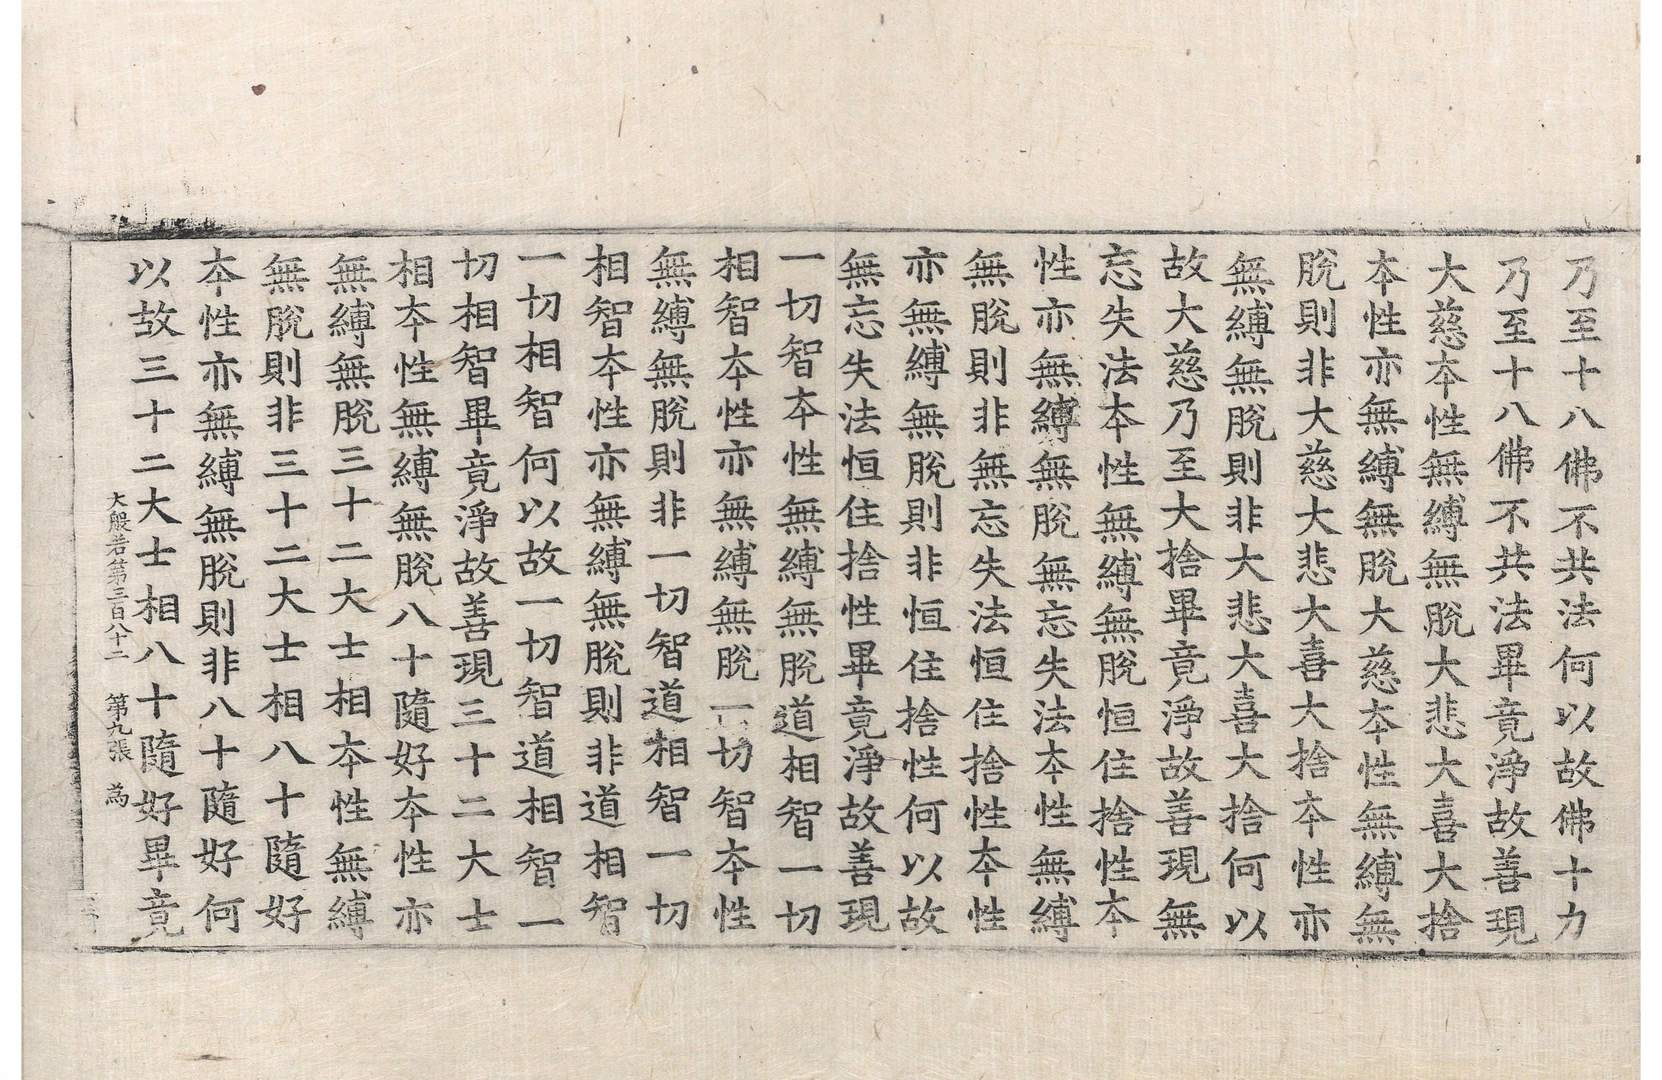 乃至十八佛不共法何以故佛十力
乃至十八佛不共法畢竟淨故善現
大慈本性無縛無脫大悲大喜大捨
本性亦無縛無脫大慈本性無縛無
脫則非大慈大悲大喜大捨本性亦
無縛無脫則非大悲大喜大捨何以
故大慈乃至大捨畢竟淨故善現無
忘失法本性無縛無脫恒住捨性本
性亦無縛無脫無忘失法本性無縛
無脫則非無忘失法恒住捨性本性
亦無縛無脫則非恒住捨性何以故
無忘失法恒住捨性畢竟淨故善現
一切智本性無縛無脫道相智一切
相智本性亦無縛無脫一切智本性
無縛無脫則非一切智道相智一切
相智本性亦無縛無脫則非道相智
一切相智何以故一切智道相智一
切相智畢竟淨故善現三十二大士
相本性無縛無脫八十隨好本性亦
無縛無脫三十二大士相本性無縛
無脫則非三十二大士相八十隨好
本性亦無縛無脫則非八十隨好何
以故三十二大士相八十隨好畢竟
大般若第三百八十二 第九張 為